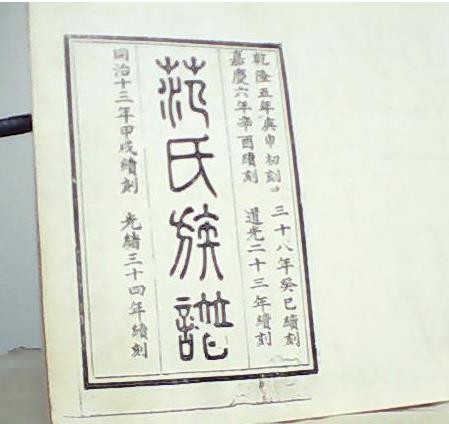 乾隆五年庚申初刻 三十八年癸巳續刻
嘉慶六年辛酉續刻 道光二十三年續刻
范氏族譜
同治十三年甲戌續刻 光緒三十四年續刻